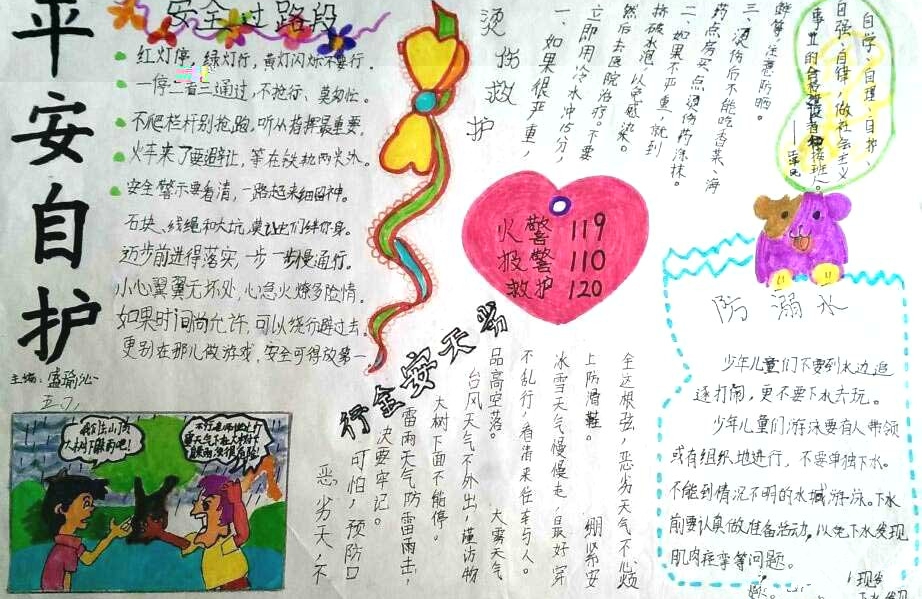 平安自护
主编：盛瑜沁
五.7.
安全过路段
红灯停，绿灯行，黄灯闪烁不要行．
一停二看三通过，不抢行、莫匆忙。
不爬栏杆别抢跑，听从指挥最重要，
火车来了要避让，等在铁轨两米外。
安全警示要看清，一路起来细留神。
石块、线绳和大坑，莫让它们绊你身。
迈步前进得落实，一步一步慢通行。
小心翼翼无坏处，心急火燎多险情．
如果时间尚允许，可以绕行避过去。
更别在那儿做游戏，安全可得放第一
烫伤救护
一、如果很严重，
立即用冷水冲15分，
然后去医院治疗。不要
挤破水泡，以免感染。
二、如果不严重，就到
药点房买点烫伤药涂抹。
三、烫伤后不能吃香菜、海
鲜等，注意防晒。
自学、自理、自护、
自强、自律，做社会主义
事业的合格建设者和接班人。
火警 119
报警 110
救护 120
防溺水
少年儿童们不要到水边追
逐打闹，更不要下水去玩。
少年儿童们游泳要有人带领
或有组织地进行，不要单独下水。
不能到情况不明的水域游泳。下水
前要认真做准备活动，以免下水发现
肌肉痉挛等问题。
劣天安全行
恶劣天，不
可怕，预防口
决要牢记。
雷雨天气防雷雨击，
大树下面不能停。
台风天气不外出，谨访物
品高空落。 大雾天气
不乱行，看清来往车与人。
冰雪天气慢慢走，最好穿
上防滑鞋。 绷紧安
全这根弦，恶劣天气不心烦
我们去山顶
大树下躲雨吧！